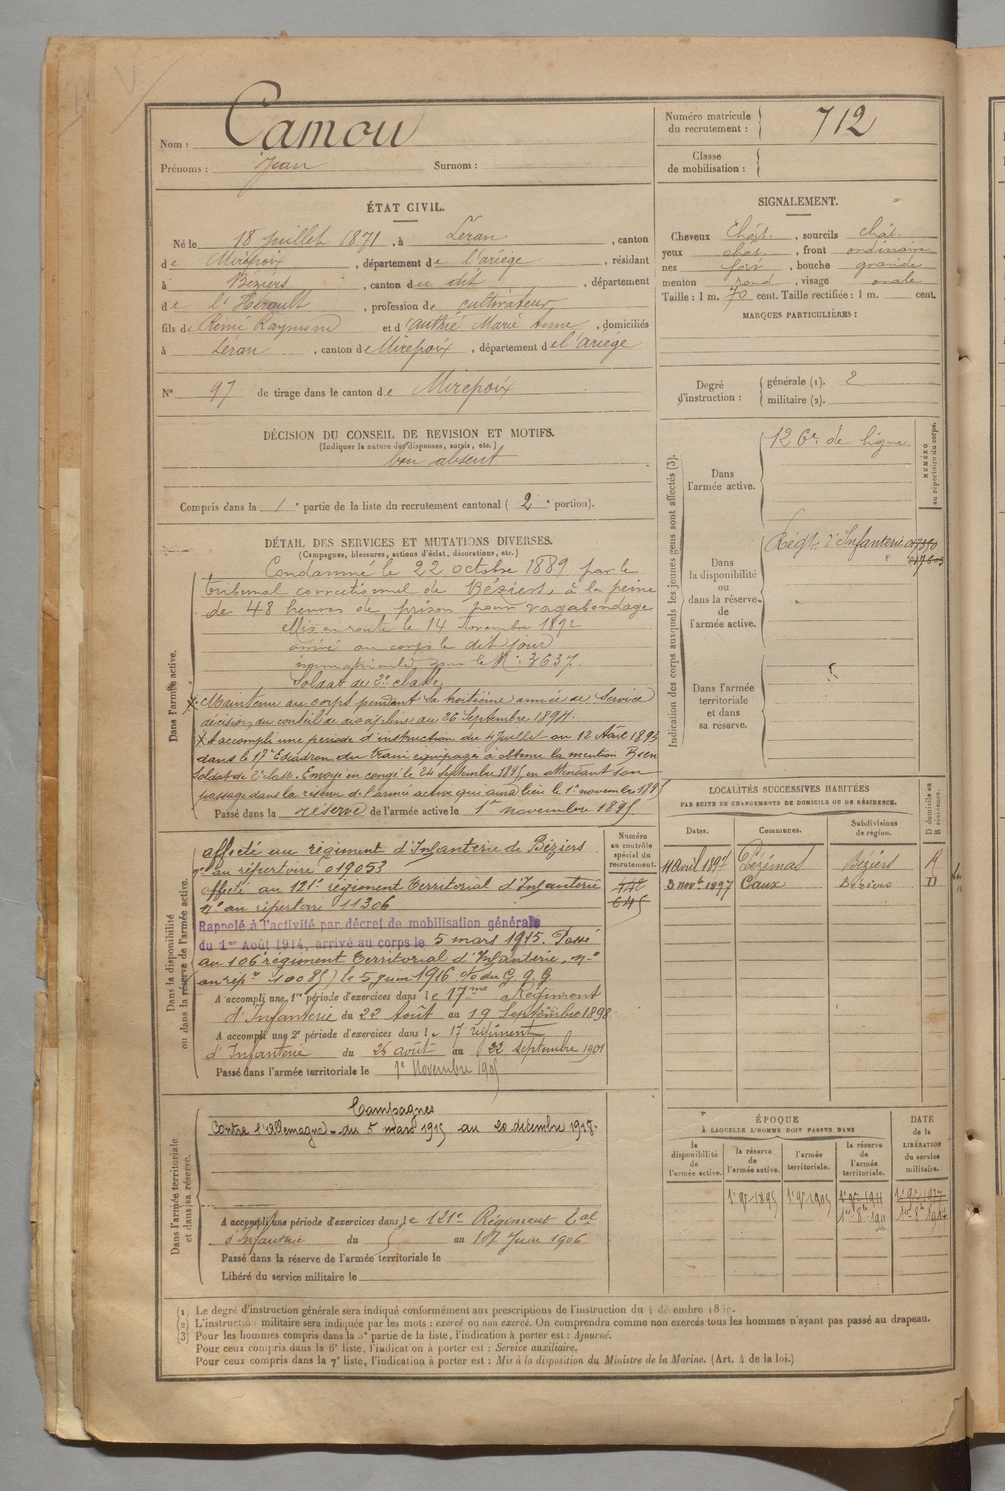 Nom : Camou
Prénoms : Jean Surnom :
Numéro matricule du recrutement : 712
Classe de mobilisation :
ÉTAT CIVIL.
Né le 18 juillet 1871, à Léran, canton
de Mirepoix, département de l'ariège, résidant
à Béziers, canton du dit, département
de l'Hérault, profession de cultivateur
fils de Rémi Raymond et d autrié Marie Anne, domiciliés
à Léran, canton de Mirepoix, département de l'ariège
N° 97 de tirage dans le canton de Mirepoix
DÉCISION DU CONSEIL DE REVISION ET MOTIFS.
(Indiquer la nature des dispenses, sursis, etc.)
bon absent
Compris dans la 1e partie de la liste du recrutement cantonal (2e portion).
SIGNALEMENT.
Cheveux chât., sourcils chât.
yeux chât., front ordinaire
nez fort, bouche grande
menton rond, visage ovale
Taille : 1 m. 70 cent. Taille rectifiée : 1 m. cent.
MARQUES PARTICULIÈRES :
Degré d'instruction : générale (1). 2
militaire (2).
Indication des corps auxquels les jeunes gens sont affectés (3).
NUMÉRO au répertoire du corps.
Dans l'armée active. 126e de ligne
Dans la disponibilité ou dans la réserve de l'armée active. Régt. d'Infanterie
Dans l'armée territoriale et dans sa réserve.
DÉTAIL DES SERVICES ET MUTATIONS DIVERSES.
(Campagnes, blessures, actions d'éclat, décorations, etc.)
Dans l'armée active.
Condamné le 22 octobre 1889 par le
tribunal correctionnel de Béziers, à la peine
de 48 heures de prison pour vagabondage
Mis en route le 14 Novembre 1892
arrivé au corps le dit jour
immatriculé sous le N° 3637.
Soldat de 2e classe
Maintenu au corps pendant la troisième année de Service
décision du conseil de discipline du 26 Septembre 1894.
A accompli une période d'instruction du 4 Juillet au 12 Août 1895
dans le 17e Escadron du train équipages à obtenu la mention Bien
Soldat de 2e classe. Envoyé en congé le 24 septembre 1895 en attendant son
passage dans la réserve de l'armée active qui aura lieu le 1er novembre 1895
Passé dans la réserve de l'armée active le 1er novembre 1895
Dans la disponibilité ou dans la réserve de l'armée active.
Numéro au contrôle spécial du recrutement.
affecté au régiment d'Infanterie de Béziers
n° au répertoire 019053
affecté au 121e régiment Territorial d'Infanterie
n° au répertoire 11306
645
Rappelé à l'activité par décret de mobilisation générale
du 1er Août 1914, arrivé au corps le 5 mars 1915. Passé
au 106e régiment Territorial d'Infanterie, n°
au répre 10085) le 5 juin 1916 o/o du G. Q. G
A accompli une 1re période d'exercices dans le 17me Régiment
d'Infanterie du 22 Août au 19 Septembre 1898
A accompli une 2e période d'exercices dans le 17 régiment
d'Infanterie du 26 août au 22 septembre 1901
Passé dans l'armée territoriale le 1er Novembre 1905
LOCALITÉS SUCCESSIVES HABITÉES
PAR SUITE DE CHANGEMENTS DE DOMICILE OU DE RÉSIDENCE.
Dates. Communes. Subdivisions de région. D domicile ou R résidence.
11 Avril 1897 Pézénas Béziers R
3 novbe 1897 Caux Béziers D
Dans l'armée territoriale et dans sa réserve.
Campagnes
Contre l'Allemagne - du 5 mars 1915 au 20 décembre 1918.
A accompli une période d'exercices dans le 121e Régiment Tal
d'Infanterie du 5 au 17 Juin 1906
Passé dans la réserve de l'armée territoriale le
Libéré du service militaire le
ÉPOQUE
À LAQUELLE L'HOMME DOIT PASSER DANS
la disponibilité de l'armée active. la réserve de l'armée active. l'armée territoriale. la réserve de l'armée territoriale.
DATE de la LIBÉRATION du service militaire.
1er 9re 1895 1er 9re 1905 1er 9re 1911
(1) Le degré d'instruction générale sera indiqué conformément aux prescriptions de l'instruction du 4 décembre 1889.
(2) L'instruction militaire sera indiquée par les mots : exercé ou non exercé. On comprendra comme non exercés tous les hommes n'ayant pas passé au drapeau.
(3) Pour les hommes compris dans la 5e partie de la liste, l'indication à porter est : Ajourné.
Pour ceux compris dans la 6e liste, l'indication à porter est : Service auxiliaire.
Pour ceux compris dans la 7e liste, l'indication à porter est : Mis à la disposition du Ministre de la Marine. (Art. 4 de la loi.)